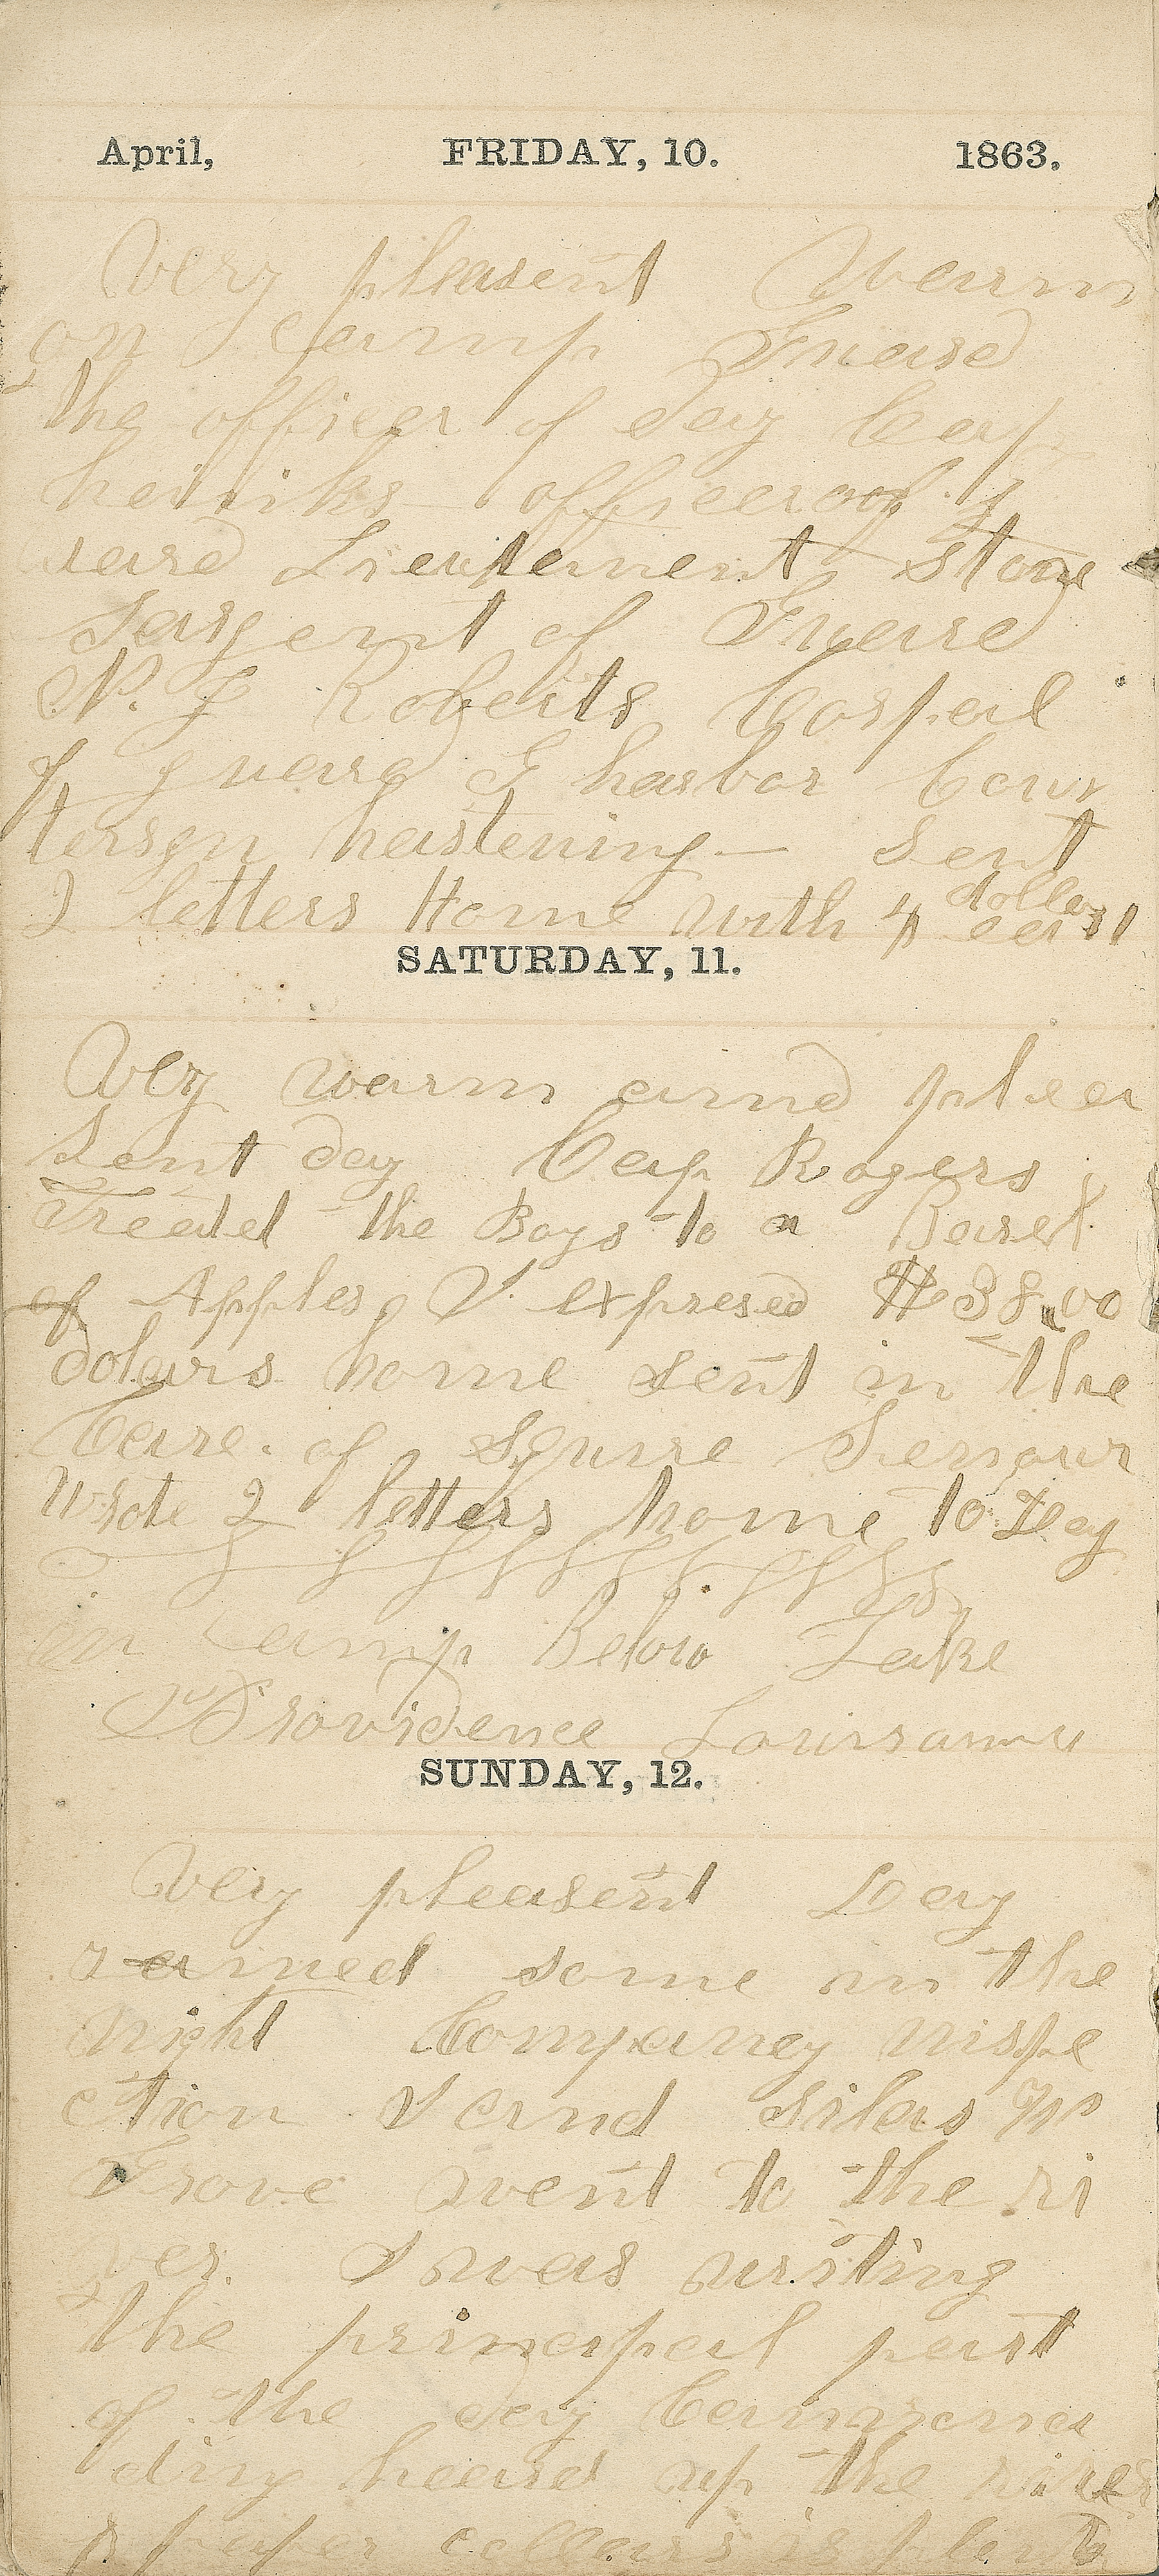 April, FRIDAY, 10. 1863.
Very pleasent Warm
on Camp Guard
the officer of day Cap
heinks officer of g
uard Lieutenent Stone
Sargent of Guard
N. J Roberts Corpral
of guard E harbor Coun
tersgn hastening — Sent
2 letters Home with 4 dollars
SATURDAY, 11.
Very warm and plea
sent day Cap Rogers
Treated the Boys to a Barel
of Apples, I expresed $38.00
dolars home sent in the
Care of Squire
Wrote 2 letters home to Day
in Camp Below Lake
Providence Louisanna
SUNDAY, 12.
Very pleasent Day
rained some in the
night Company inspe
ction I and Silas W
Grove went to the ri
ver. I was writing
the principal part
of the day Cannona
ding heard up the river
paper collars is plenty